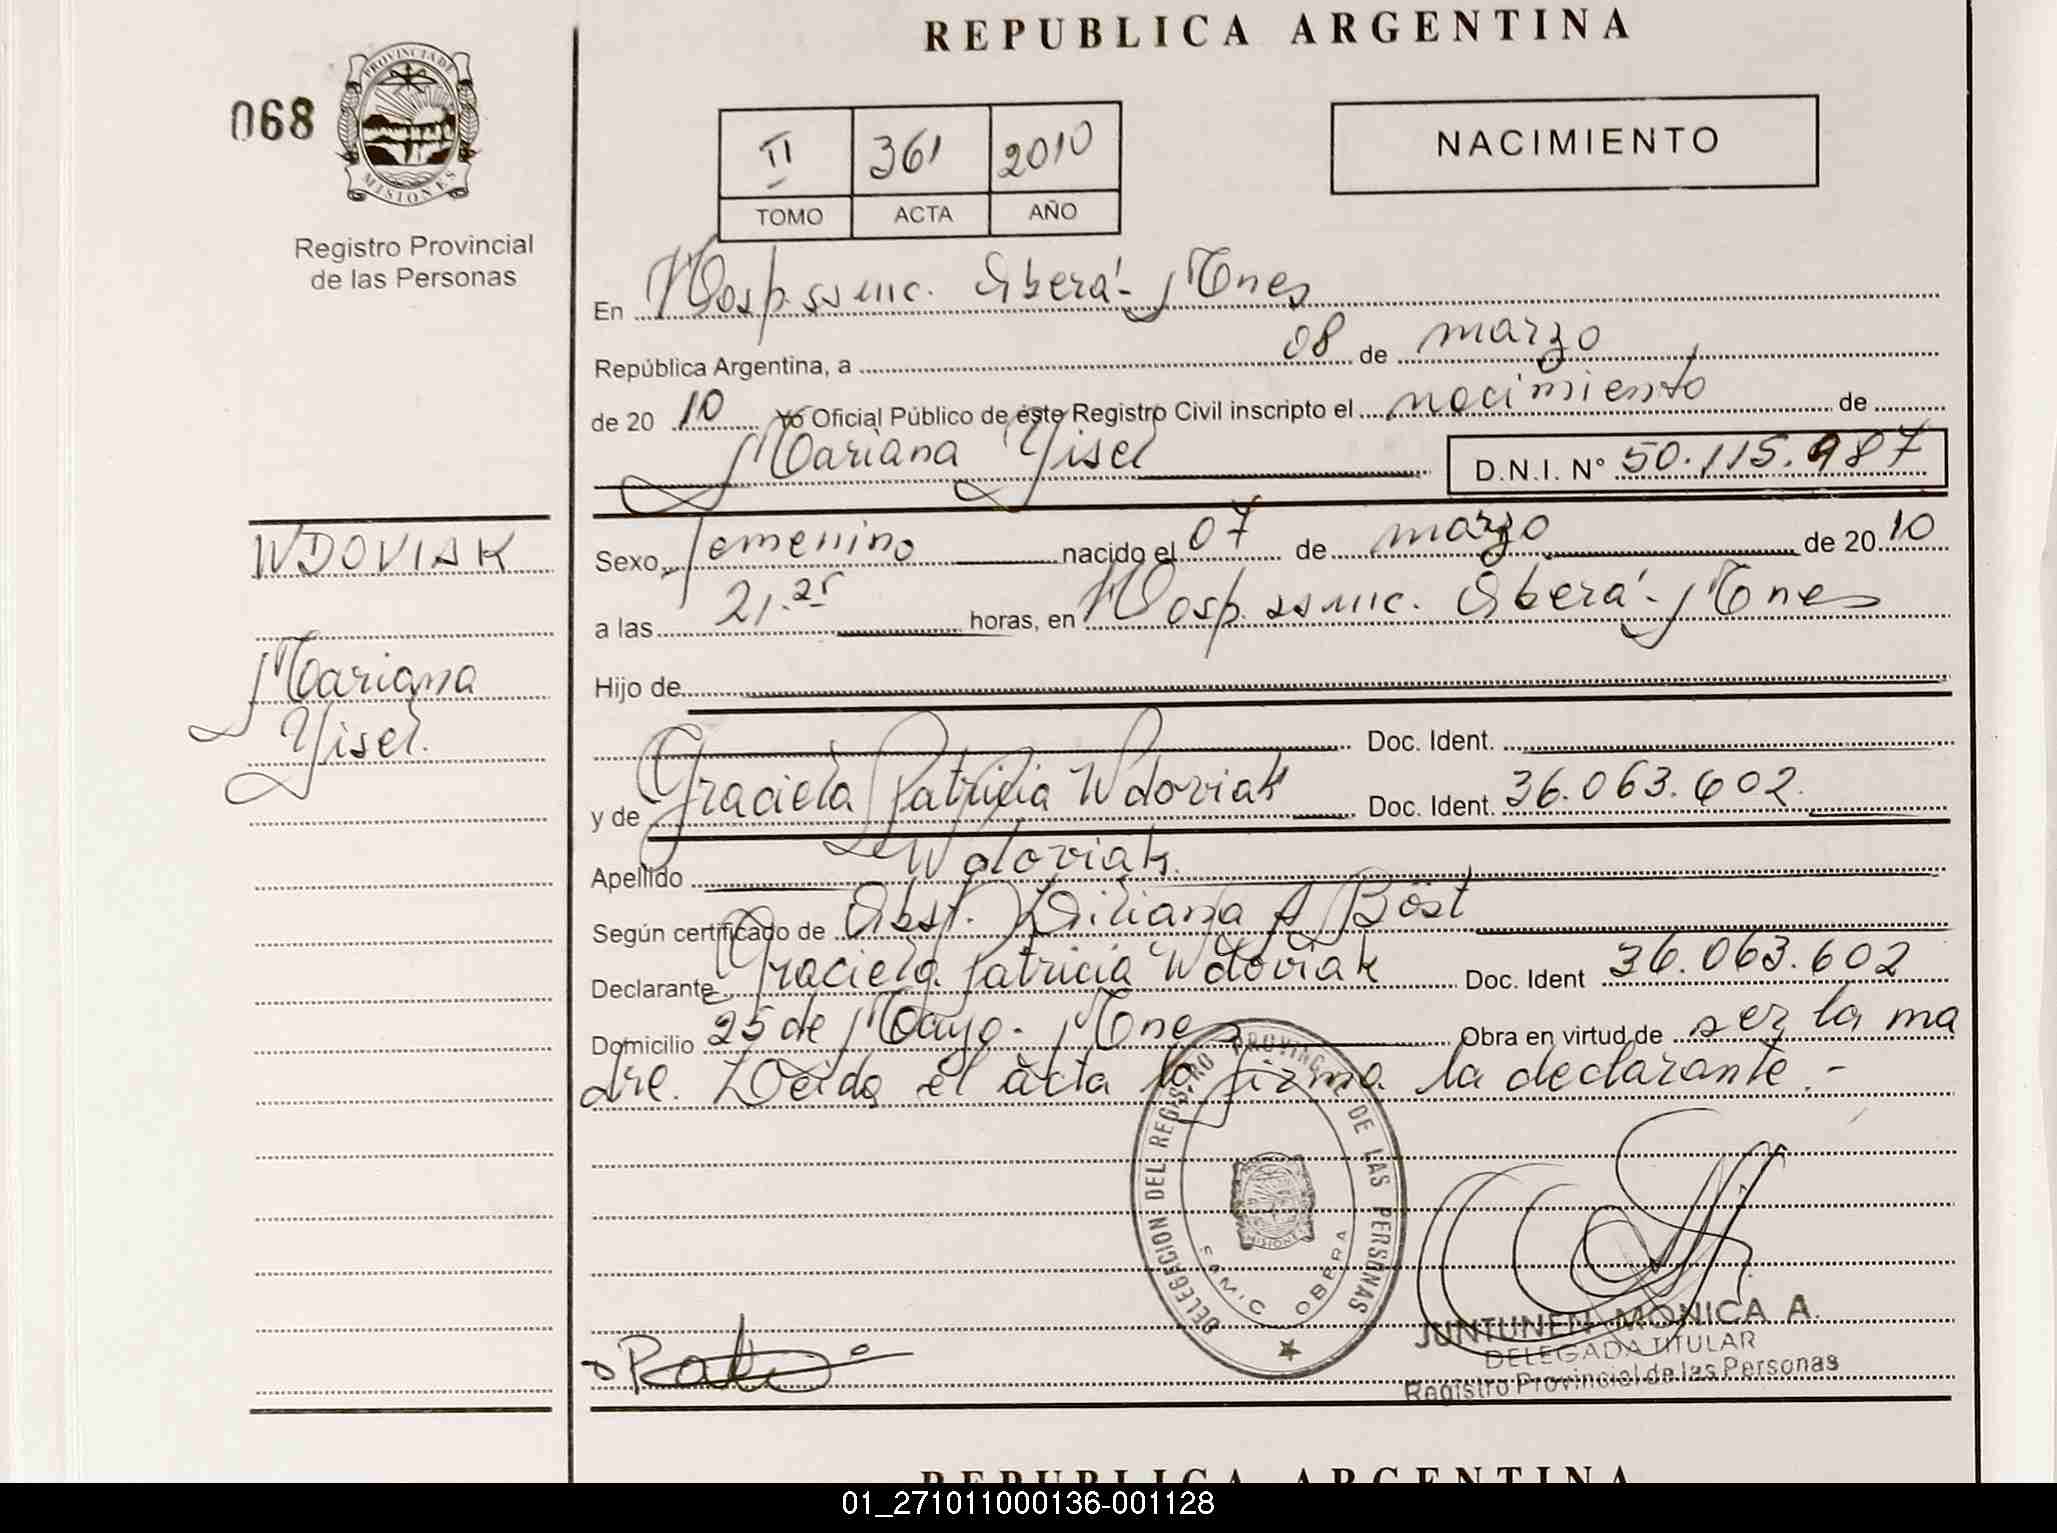 REPUBLICA ARGENTINA
068
PROVINCIA DE
MISIONES
Registro Provincial
de las Personas
II 361 2010
TOMO ACTA AÑO
NACIMIENTO
En Hosp. ss mc. Oberá - Mnes
República Argentina, a 08 de marzo
de 20 10 Yo Oficial Público de éste Registro Civil inscripto el nacimiento de
Mariana Yisel D.N.I. N° 50.115.987
WDOVIAK
Mariana
Yisel.
Sexo femenino nacido el 07 de marzo de 20 10
a las 21.25 horas, en Hosp. ss mc. Oberá - Mnes
Hijo de
Doc. Ident.
y de Graciela Patricia Wdoviak Doc. Ident. 36.063.602.
Apellido Wdoviak.
Según certificado de Obst. Liliana A Böst
Declarante Graciela Patricia Wdoviak Doc. Ident 36.063.602
Domicilio 25 de Mayo - Mnes Obra en virtud de ser la ma
dre. Leida el acta la firma la declarante.-
DELEGACION DEL REGISTRO PROVINCIAL DE LAS PERSONAS
MISIONES
SAMIC OBERA
JUNTUNEN MONICA A.
DELEGADA TITULAR
Registro Provincial de las Personas
REPUBLICA ARGENTINA
01_271011000136-001128